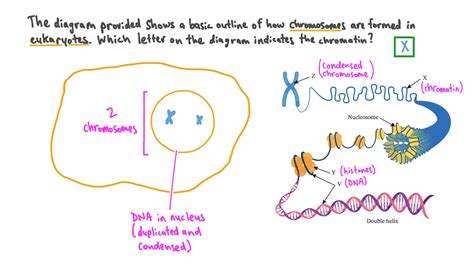 The diagram provided shows a basic outline of how chromosomes are formed in
eukaryotes. Which letter on the diagram indicates the chromatin? X
2
chromosomes
DNA in nucleus
(duplicated and
condensed)
(condensed
chromosome)
Z
X
(chromatin)
Nucleosome
Y (histones)
V (DNA)
Double helix